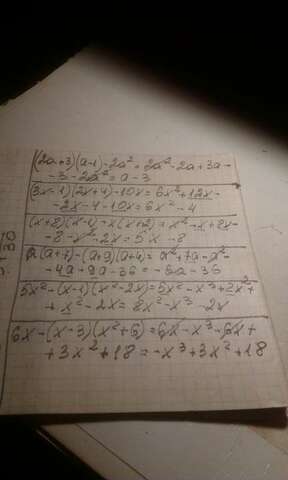 (2a+3)(a-1)-2a²=2a²-2a+3a-
-3-2a²=a-3
(3x-1)(2x+4)-10x=6x²+12x-
-2x-4-10x=6x²-4
(x+8)(x-1)-x(x+2)=x²-x+8x-
-8-x²-2x=5x-8
a(a+7)-(a+9)(a+4)=a²+7a-a²-
-4a-9a-36=-6a-36
5x²-(x-1)(x²-2x)=5x²-x³+2x²+
+x²-2x=8x²-x³-2x
6x-(x-3)(x²+6)=6x-x³-6x+
+3x²+18=-x³+3x²+18